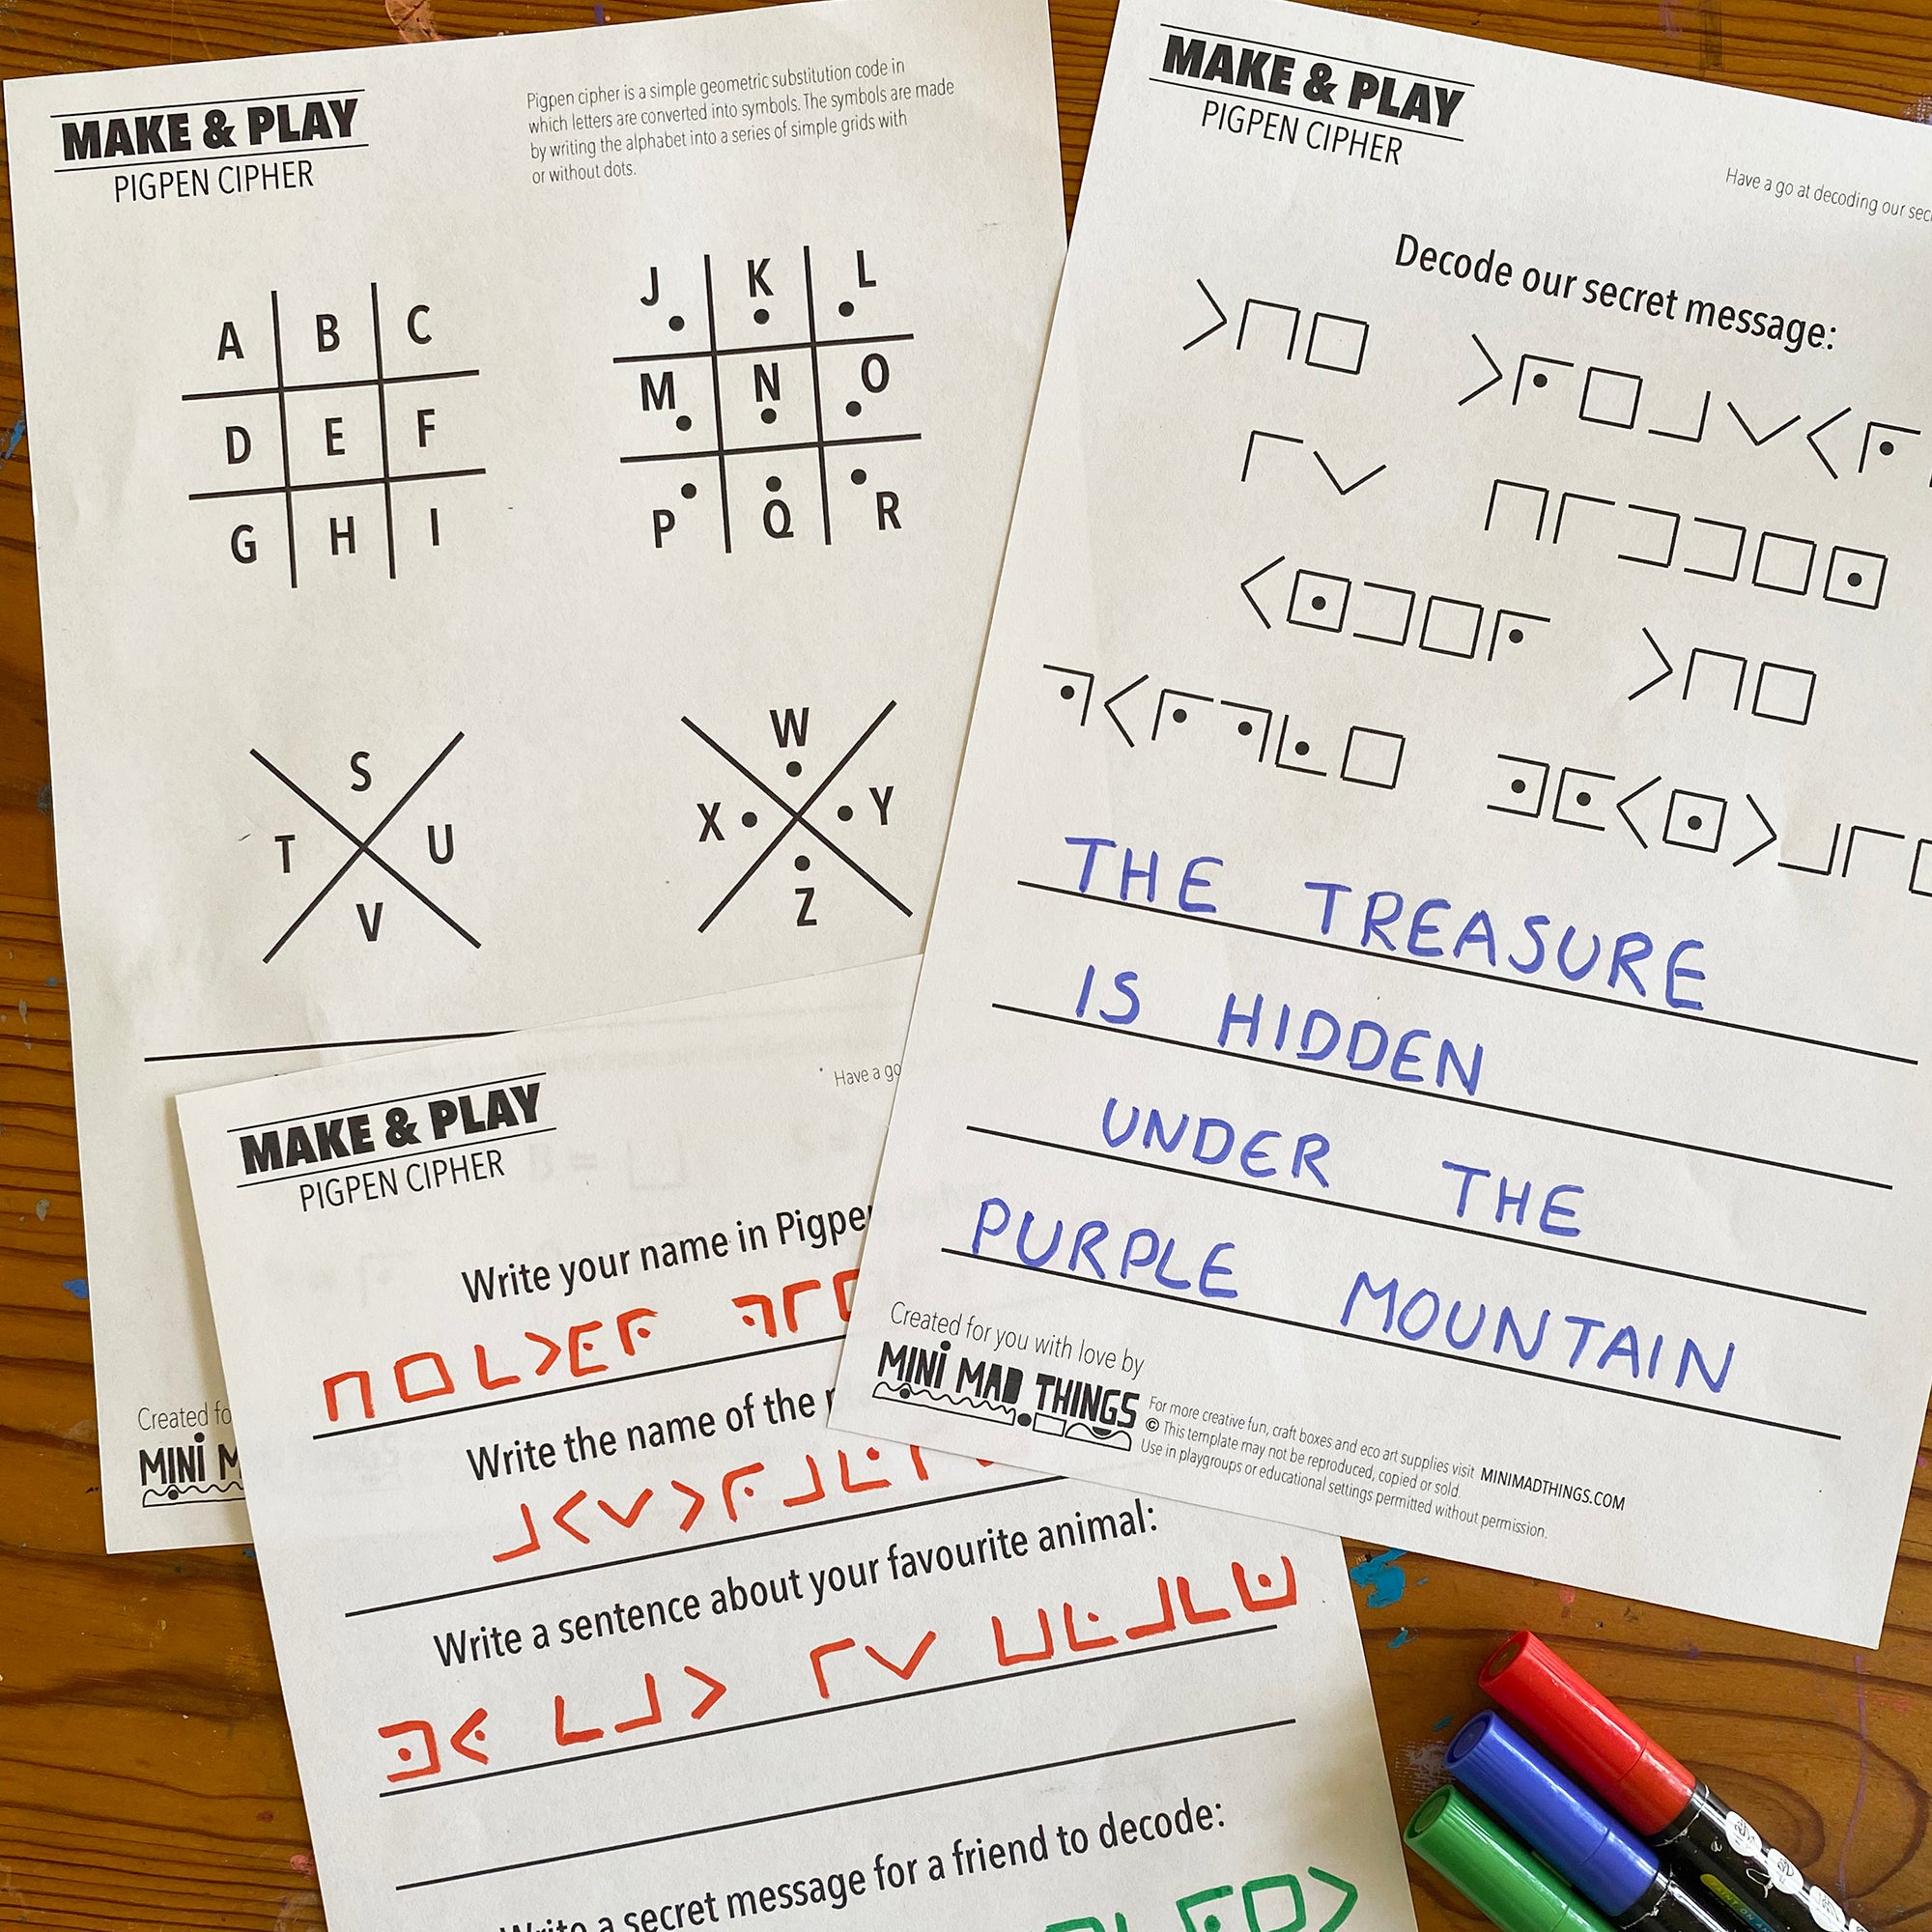 MAKE & PLAY
PIGPEN CIPHER
Pigpen cipher is a simple geometric substitution code in
which letters are converted into symbols. The symbols are made
by writing the alphabet into a series of simple grids with
or without dots.
A B C
D E F
G H I
J K L
M N O
P Q R
S
T U
V
W
X Y
Z
Created
MINI
MAKE & PLAY
PIGPEN CIPHER
Have a go at decoding our
Decode our secret message:
THE TREASURE
IS HIDDEN
UNDER THE
PURPLE MOUNTAIN
Created for you with love by
MINI MAD THINGS
For more creative fun, craft boxes and eco art supplies visit MINIMADTHINGS.COM
© This template may not be reproduced, copied or sold.
Use in playgroups or educational settings permitted without permission.
MAKE & PLAY
PIGPEN CIPHER
Have a go
Write your name in
Write the name of the
Write a sentence about your favourite animal:
Write a secret message for a friend to decode: